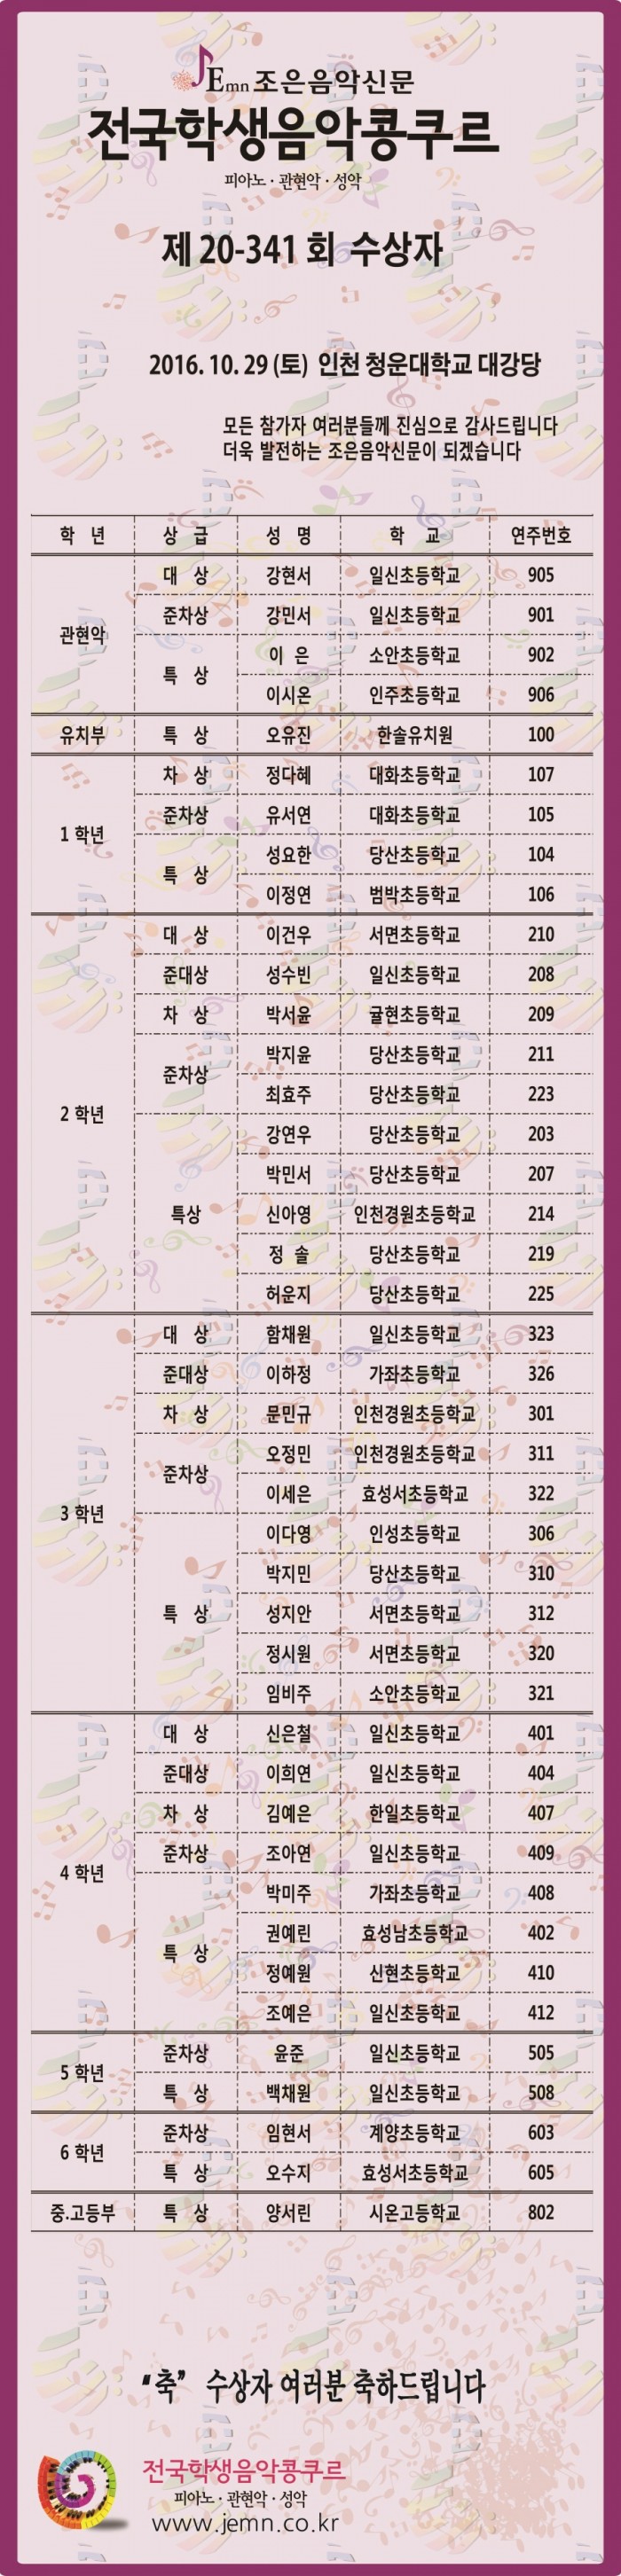 Emn 조은음악신문
전국학생음악콩쿠르
피아노 · 관현악 · 성악
제 20-341 회 수상자
2016. 10. 29 (토) 인천 청운대학교 대강당
모든 참가자 여러분들께 진심으로 감사드립니다
더욱 발전하는 조은음악신문이 되겠습니다
학 년 상 급 성 명 학 교 연주번호
관현악 대 상 강현서 일신초등학교 905
준차상 강민서 일신초등학교 901
특 상 이 은 소안초등학교 902
이시온 인주초등학교 906
유치부 특 상 오유진 한솔유치원 100
1 학년 차 상 정다혜 대화초등학교 107
준차상 유서연 대화초등학교 105
특 상 성요한 당산초등학교 104
이정연 범박초등학교 106
2 학년 대 상 이건우 서면초등학교 210
준대상 성수빈 일신초등학교 208
차 상 박서윤 귤현초등학교 209
준차상 박지윤 당산초등학교 211
최효주 당산초등학교 223
특상 강연우 당산초등학교 203
박민서 당산초등학교 207
신아영 인천경원초등학교 214
정 솔 당산초등학교 219
허윤지 당산초등학교 225
3 학년 대 상 함채원 일신초등학교 323
준대상 이하정 가좌초등학교 326
차 상 문민규 인천경원초등학교 301
준차상 오정민 인천경원초등학교 311
이세은 효성서초등학교 322
특 상 이다영 인성초등학교 306
박지민 당산초등학교 310
성지안 서면초등학교 312
정시원 서면초등학교 320
임비주 소안초등학교 321
4 학년 대 상 신은철 일신초등학교 401
준대상 이희연 일신초등학교 404
차 상 김예은 한일초등학교 407
준차상 조아연 일신초등학교 409
특 상 박미주 가좌초등학교 408
권예린 효성남초등학교 402
정예원 신현초등학교 410
조예은 일신초등학교 412
5 학년 준차상 윤준 일신초등학교 505
특 상 백채원 일신초등학교 508
6 학년 준차상 임현서 계양초등학교 603
특 상 오수지 효성서초등학교 605
중.고등부 특 상 양서린 시온고등학교 802
“축” 수상자 여러분 축하드립니다
전국학생음악콩쿠르
피아노 · 관현악 · 성악
www.jemn.co.kr